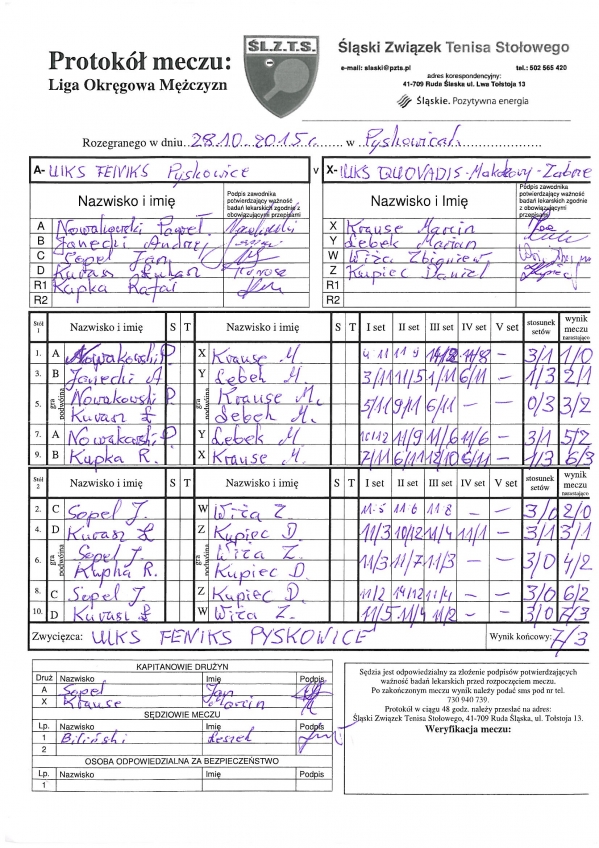 Protokół meczu:
Liga Okręgowa Mężczyzn
ŚL.Z.T.S.
Śląski Związek Tenisa Stołowego
e-mail: slaski@pzts.pl tel.: 502 565 420
adres korespondencyjny:
41-709 Ruda Śląska ul. Lwa Tołstoja 13
Śląskie. Pozytywna energia
Rozegranego w dniu 28.10.2015r. w Pyskowicach
A- UKS FENIKS Pyskowice v X- UKS QUOVADIS-Makoszowy-Zabrze
Nazwisko i imię Podpis zawodnika potwierdzający ważność badań lekarskich zgodnie z obowiązującymi przepisami Nazwisko i imię Podpis zawodnika potwierdzający ważność badań lekarskich zgodnie z obowiązującymi przepisami
A Nowakowski Paweł X Krause Marcin
B Janecki Andrzej Y Lebek Marian
C Sopel Jan W Wiża Zbigniew
D Kuvasz Łukasz Z Kupiec Daniel
R1 Kupka Rafał R1
R2 R2
Stół 1 Nazwisko i imię S T Nazwisko i imię S T I set II set III set IV set V set stosunek setów wynik meczu narastająco
1. A Nowakowski P. X Krause M. 3/1 1/0
3. B Janecki A Y Lebek M. 3/11 11/5 1/11 6/11 - 1/3 2/1
5. gra podwójna Nowakowski Krause M. 5/11 9/11 6/11 - - 0/3 3/2
Kuvasz Ł Lebek M.
7. A Nowakowski P Y Lebek M. 10/12 11/9 11/6 11/6 - 3/1 5/2
9. B Kupka R. X Krause M. 7/11 6/11 12/10 6/11 - 1/3 6/3
Stół 2 Nazwisko i imię S T Nazwisko i imię S T I set II set III set IV set V set stosunek setów wynik meczu narastająco
2. C Sopel J. W Wiża Z. 11/5 11/6 11/8 - - 3/0 2/0
4. D Kuvasz Ł Z Kupiec D 11/3 10/12 11/4 11/1 - 3/1 3/1
6. gra podwójna Sopel J. Wiża Z. 11/3 11/7 11/3 - - 3/0 4/2
Kupka R. Kupiec D.
8. C Sopel J Z Kupiec D. 11/2 14/12 11/4 - - 3/0 6/2
10. D Kuvasz Ł W Wiża Z. 11/5 11/4 11/2 - - 3/0 7/3
Zwycięzca: UKS FENIKS PYSKOWICE Wynik końcowy: 7/3
KAPITANOWIE DRUŻYN
Druż Nazwisko Imię Podpis
A Sopel Jan
X Krause Marcin
SĘDZIOWIE MECZU
Lp. Nazwisko Imię Podpis
1 Biliński Leszek
2
OSOBA ODPOWIEDZIALNA ZA BEZPIECZEŃSTWO
Lp. Nazwisko Imię Podpis
1
Sędzia jest odpowiedzialny za złożenie podpisów potwierdzających
ważność badań lekarskich przed rozpoczęciem meczu.
Po zakończonym meczu wynik należy podać sms pod nr tel.
730 940 739.
Protokół w ciągu 48 godz. należy przesłać na adres:
Śląski Związek Tenisa Stołowego, 41-709 Ruda Śląska, ul. Tołstoja 13.
Weryfikacja meczu: